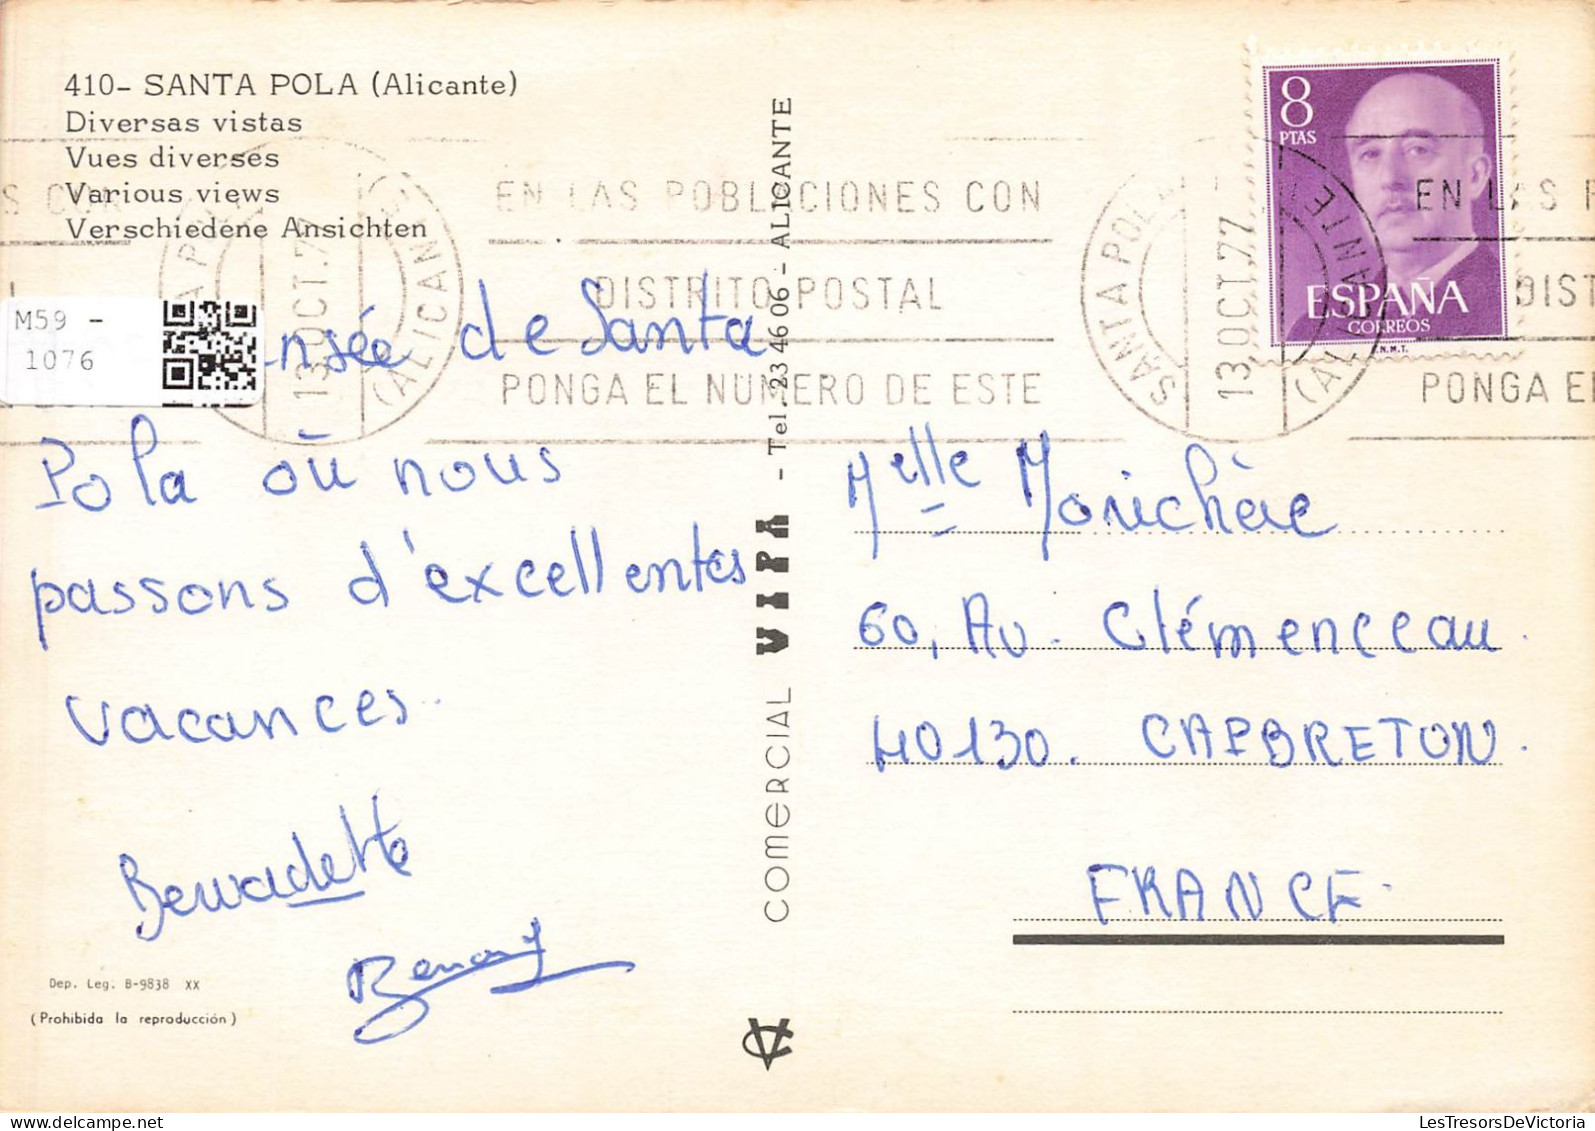 410- SANTA POLA (Alicante)
Diversas vistas
Vues diverses
Various views
Verschiedene Ansichten
M59 -
1076
nsée de Santa
Pola où nous
passons d'excellentes
vacances.
Bernadette
Dep. Leg. B-9838 XX
(Prohibida la reproducción)
COMERCIAL VIPA - Tel. 234606 - ALICANTE
EN LAS POBLACIONES CON
DISTRITO POSTAL
PONGA EL NUMERO DE ESTE
SANTA POLA
13.OCT.77
(ALICANTE)
SANTA POLA
13.OCT.77
(ALICANTE)
EN LAS P
DIST
PONGA EL
8
PTAS
ESPAÑA
CORREOS
F.N.M.T.
Melle Morichère
60, Av. Clémenceau.
40130. CAPBRETON.
FRANCE.
LesTresorsDeVictoria.com